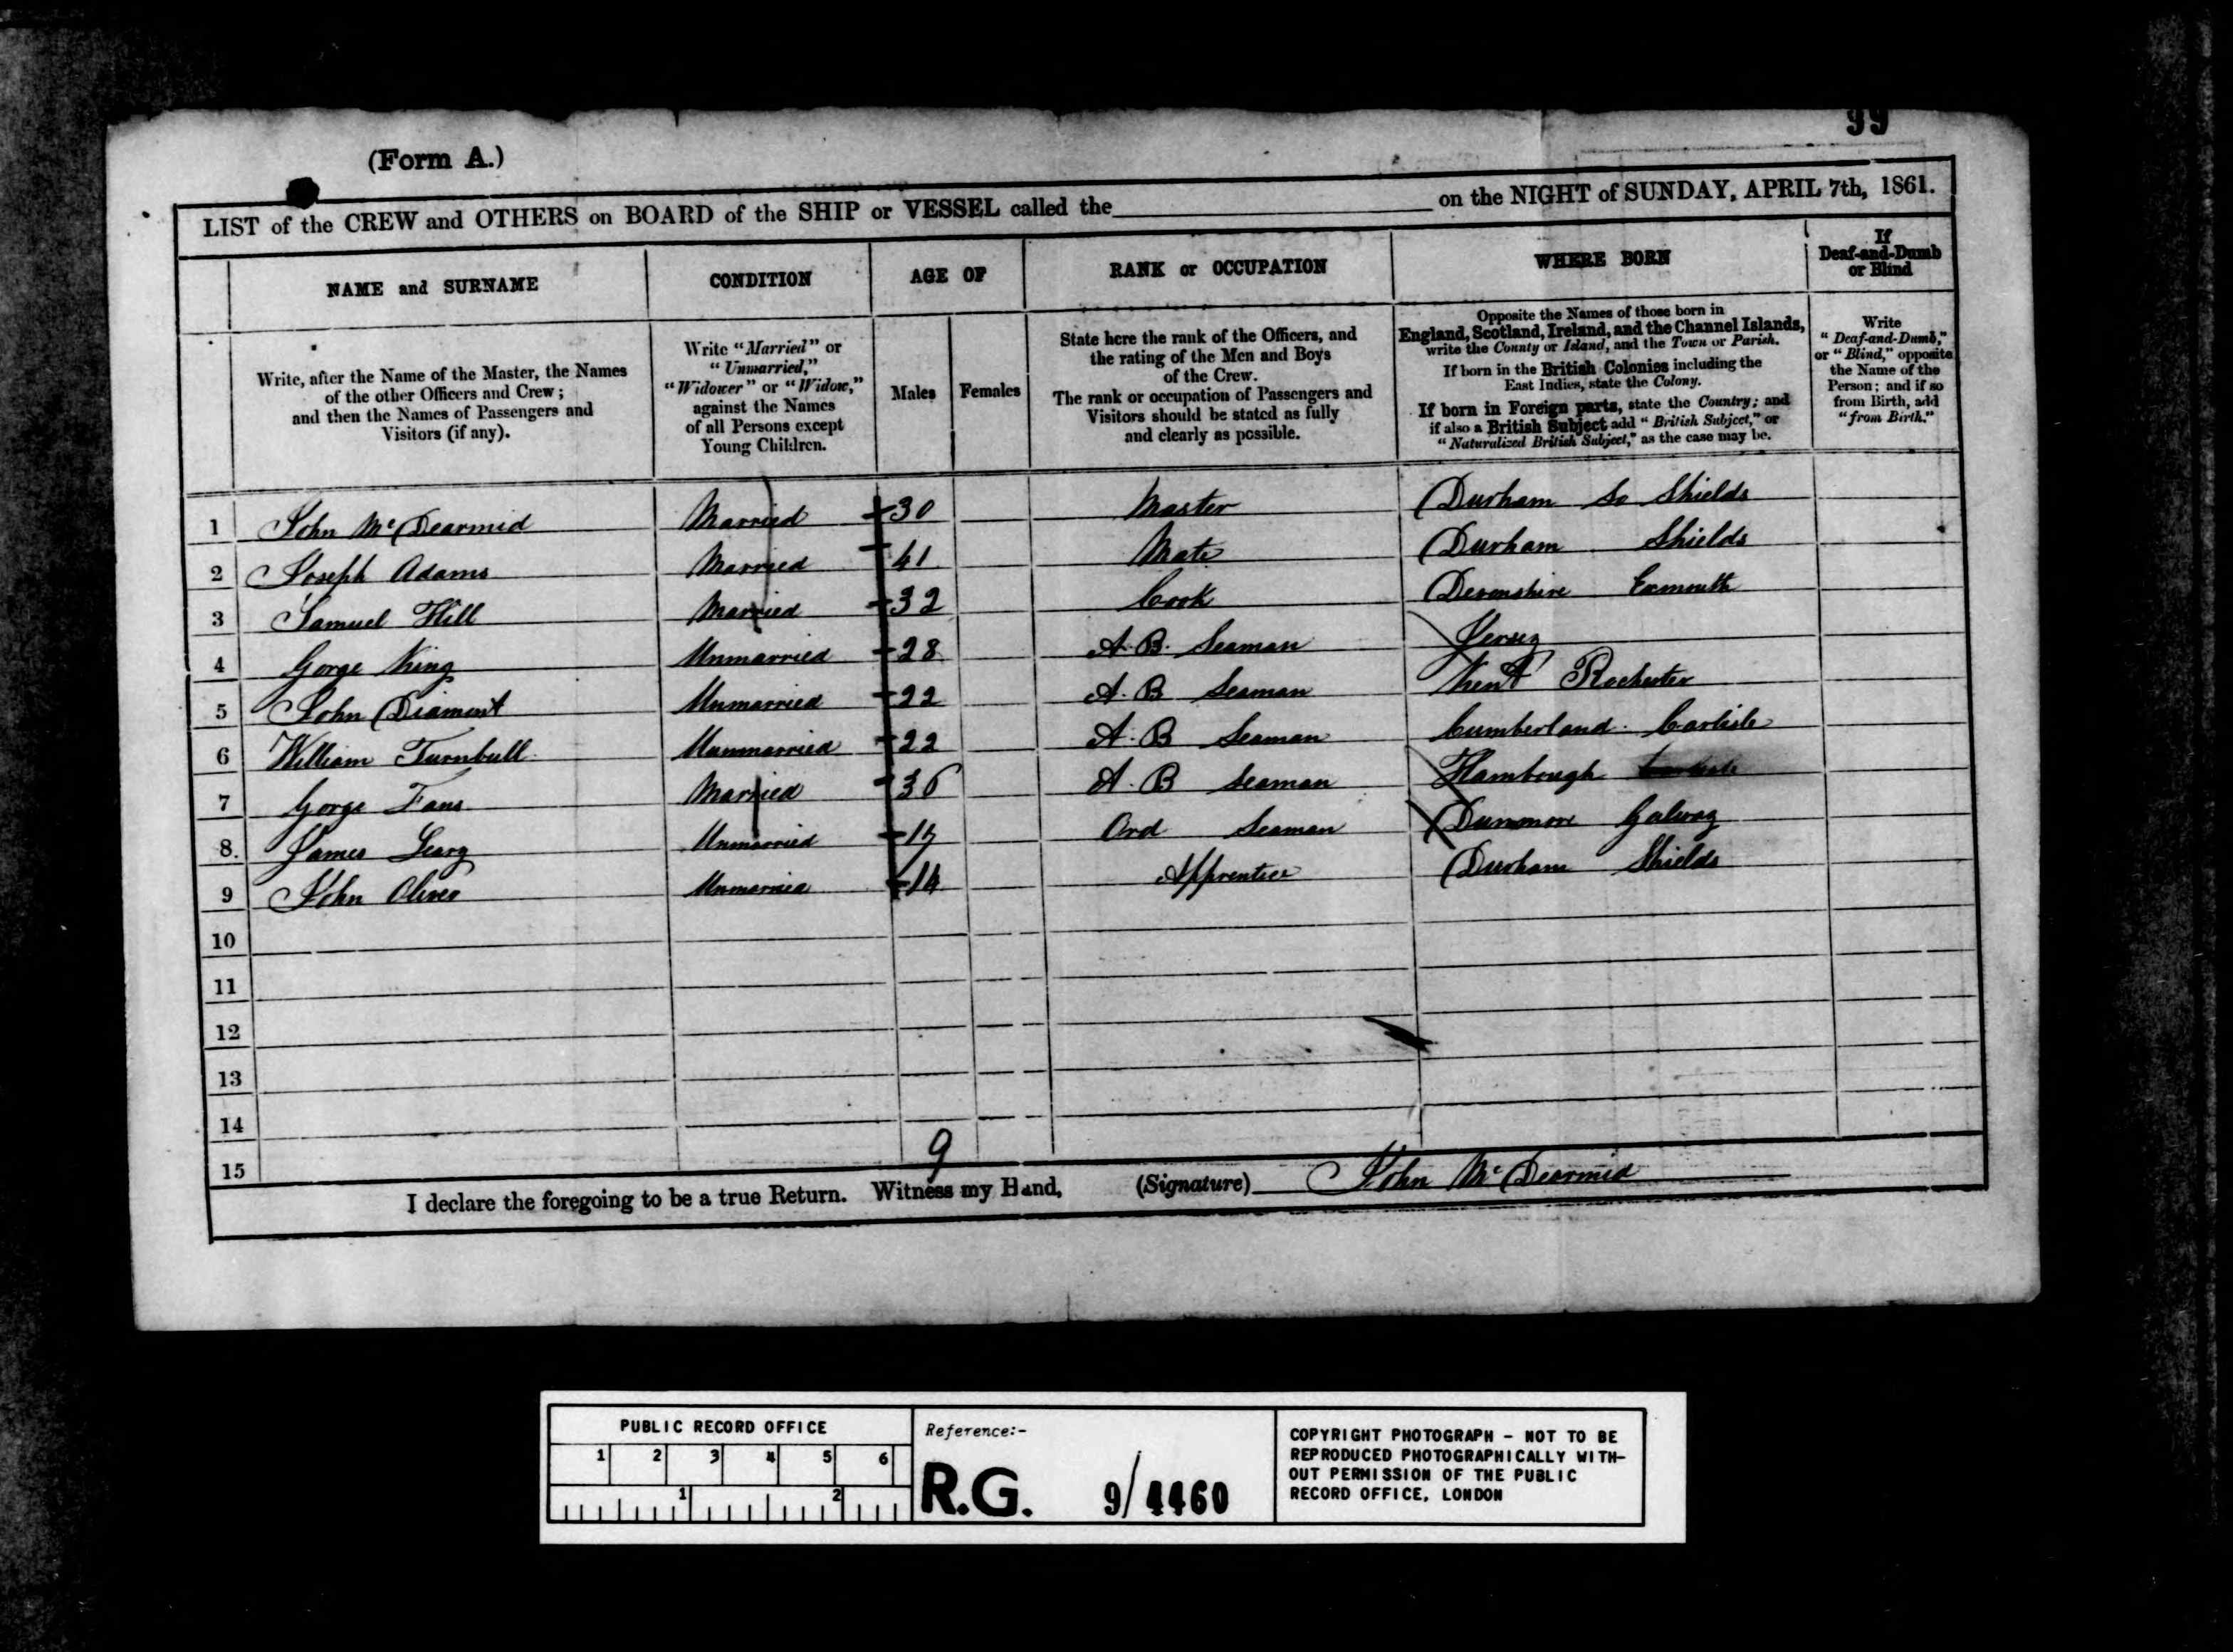 99
(Form A.)
LIST of the CREW and OTHERS on BOARD of the SHIP or VESSEL called the on the NIGHT of SUNDAY, APRIL 7th, 1861.
NAME and SURNAME CONDITION AGE OF RANK or OCCUPATION WHERE BORN If Deaf-and-Dumb or Blind
Write, after the Name of the Master, the Names
of the other Officers and Crew;
and then the Names of Passengers and
Visitors (if any).
Write "Married" or
"Unmarried,"
"Widower" or "Widow,"
against the Names
of all Persons except
Young Children.
Males Females
State here the rank of the Officers, and
the rating of the Men and Boys
of the Crew.
The rank or occupation of Passengers and
Visitors should be stated as fully
and clearly as possible.
Opposite the Names of those born in
England, Scotland, Ireland, and the Channel Islands,
write the County or Island, and the Town or Parish.
If born in the British Colonies including the
East Indies, state the Colony.
If born in Foreign parts, state the Country; and
if also a British Subject add "British Subject," or
"Naturalized British Subject," as the case may be.
Write
"Deaf-and-Dumb,"
or "Blind," opposite
the Name of the
Person; and if so
from Birth, add
"from Birth."
1 John McDearmid Married 30 Master Durham So Shields
2 Joseph Adams Married 41 Mate Durham Shields
3 Samuel Hill Married 32 Cook Devonshire Exmouth
4 Gorge King Unmarried 28 A.B. Seaman Jersey
5 John Diamont Unmarried 22 A.B Seaman Kent Rochester
6 William Turnbull Unmarried 22 A.B Seaman Cumberland Carlisle
7 Gorge Fans Married 36 A.B Seaman Hambough
8. James Leary Unmarried Ord Seaman Dunmore Galway
9 John Oliver Unmarried 14 Apprentice Durham Shields
10
11
12
13
14
15
9
I declare the foregoing to be a true Return. Witness my Hand, (Signature) John McDearmid
PUBLIC RECORD OFFICE
1 2 3 4 5 6
1 2
Reference:-
R.G. 9/4460
COPYRIGHT PHOTOGRAPH - NOT TO BE
REPRODUCED PHOTOGRAPHICALLY WITH-
OUT PERMISSION OF THE PUBLIC
RECORD OFFICE, LONDON